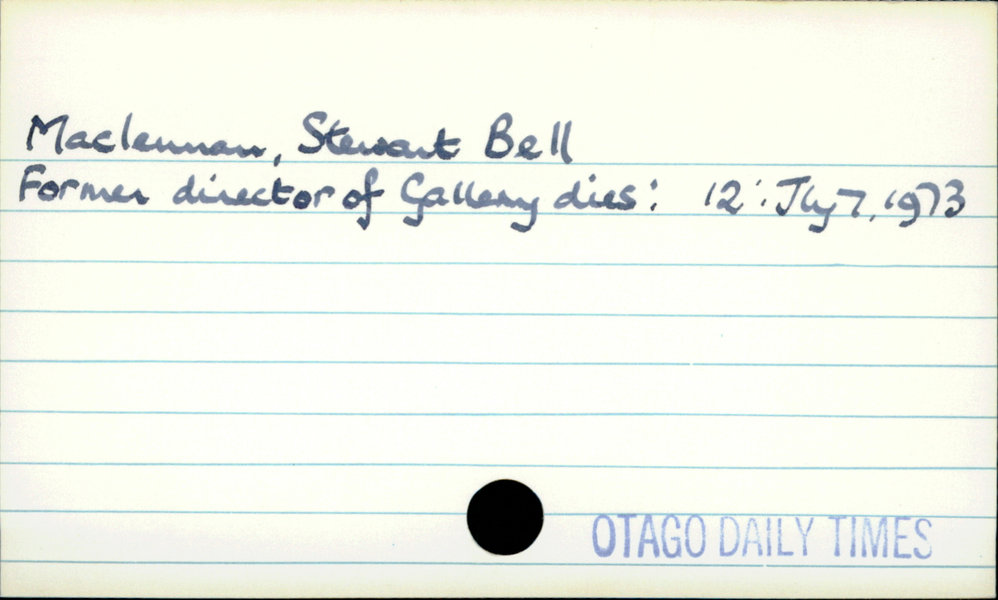 Maclennan, Stewart Bell
Former director of Gallery dies: 12: Jly 7, 1973
OTAGO DAILY TIMES